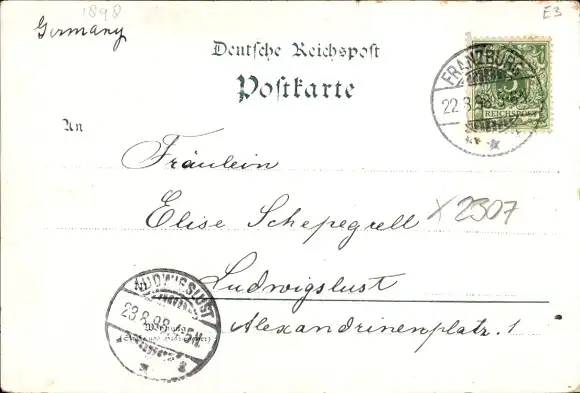 1898
E3
Germany
Deutsche Reichspost
Postkarte
FRANZBURG
22 8 98
5
REICHSPOST
An
Fräulein
Elise Schepegrell
X 2307
Ludwigslust
LUDWIGSLUST
23 8 98
Wohnung
Alexandrinenplatz. 1